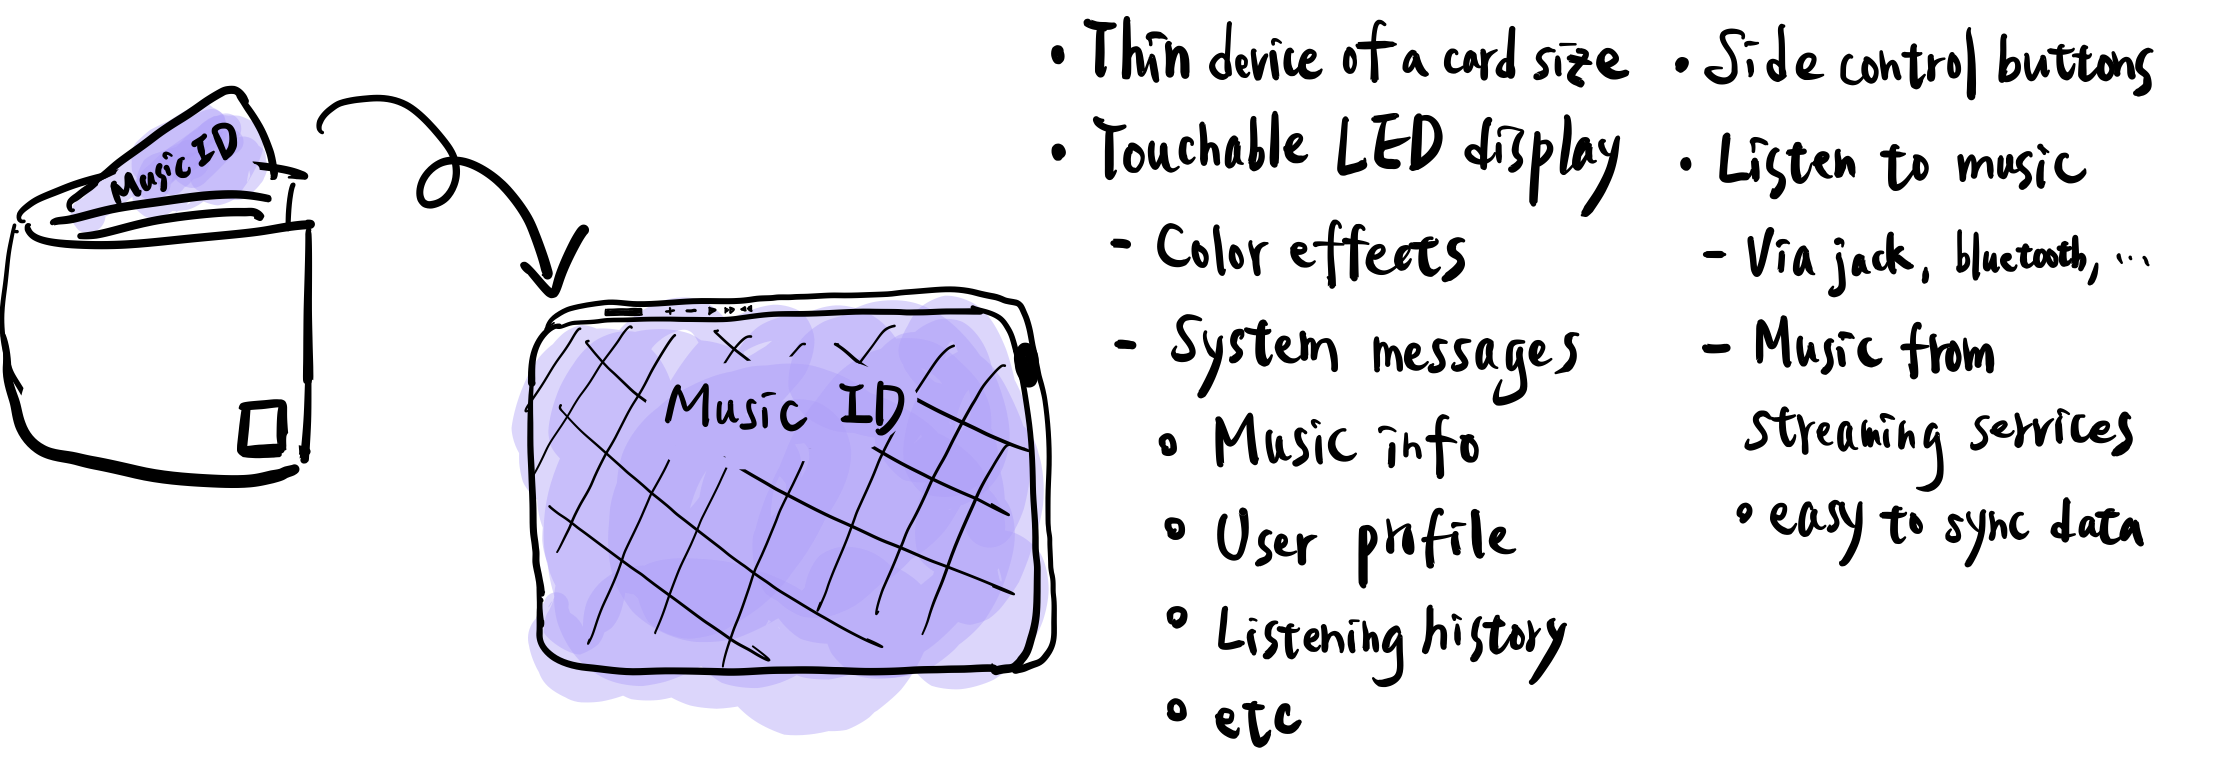 Music ID
Music ID
• Thin device of a card size
• Touchable LED display
- Color effects
- System messages
◦ Music info
◦ User profile
◦ Listening history
◦ etc
• Side control buttons
• Listen to music
- Via jack, bluetooth, ...
- Music from
streaming services
◦ easy to sync data